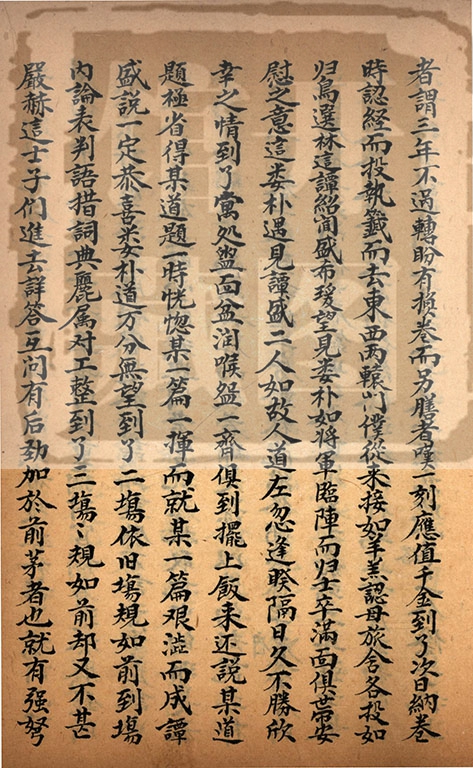 者謂三年不過轉盼有抱卷而另膳者嘆一刻應值千金到了次日納卷
時認経而投執籖而去東西両轅门僕從来接如羊羔認母旅舍各投如
归鳥選林這譚紹闻盛布瑗望見娄朴如将軍臨陣而归士卒滿面俱帶安
慰之意這娄朴遇見譚盛二人如故人道左忽逢暌隔日久不勝欣
幸之情到了寓処盥面盆润喉盌一齊俱到擺上飯来还説某道
題極省得某道題一時恍惚某一篇一揮而就某一篇艰澁而成譚
盛説一定恭喜娄朴道万分無望到了二塲依旧塲規如前到塲
内論表判語措詞典麗属对工整到了三塲〻規如前却又不甚
嚴赫這士子们進去詳答互问有后劲加於前茅者也就有强弩